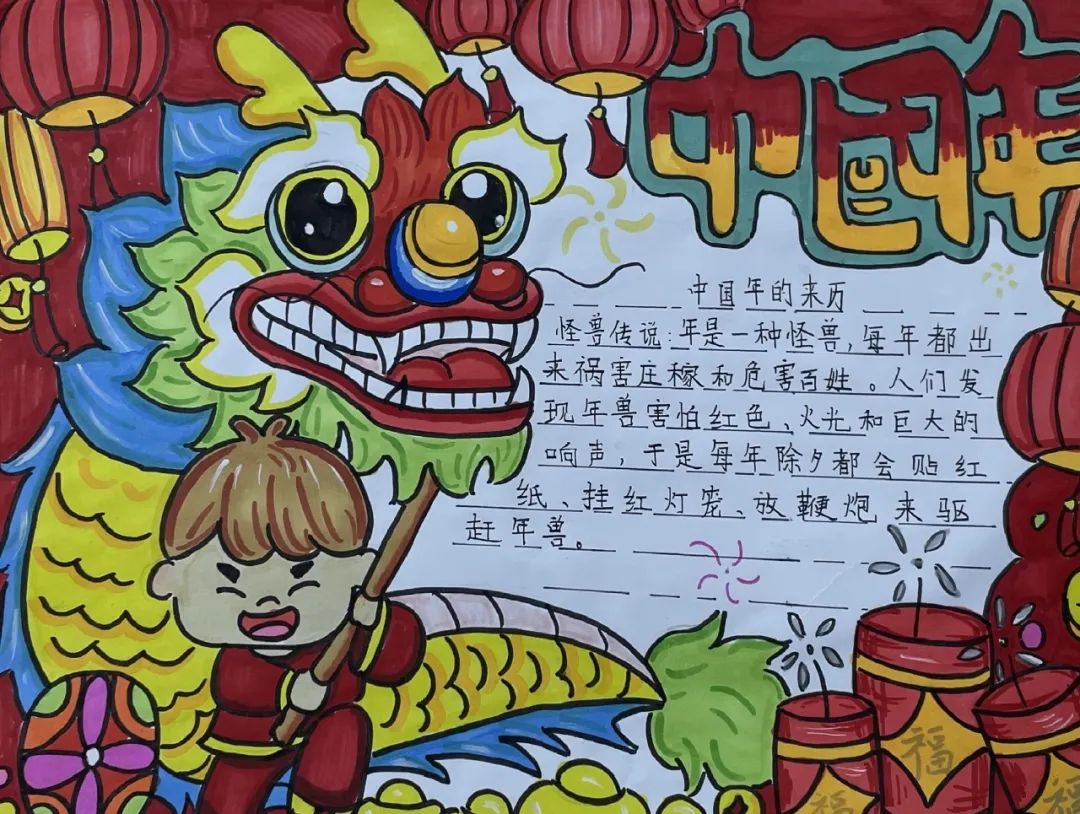 中国年
中国年的来历
怪兽传说:年是一种怪兽,每年都出
来祸害庄稼和危害百姓。人们发
现年兽害怕红色、火光和巨大的
响声,于是每年除夕都会贴红
纸、挂红灯笼、放鞭炮来驱
赶年兽。
福
福
福